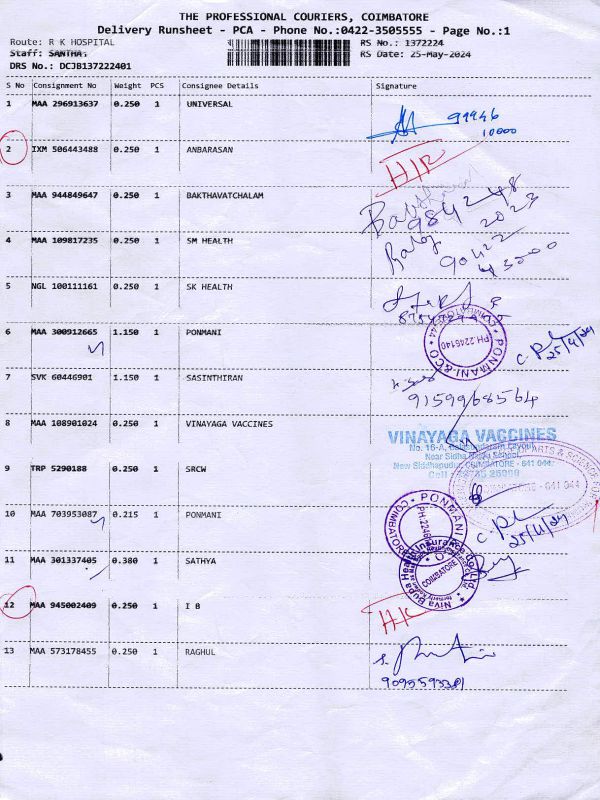 THE PROFESSIONAL COURIERS, COIMBATORE
Delivery Runsheet - PCA - Phone No.:0422-3505555 - Page No.:1
Route: R K HOSPITAL RS No.: 1372224
Staff: SANTHA. RS Date: 25-May-2024
DRS No.: DCJB137222401
S No Consignment No Weight PCS Consignee Details Signature
1 MAA 296913637 0.250 1 UNIVERSAL
99946
10000
2 IXM 506443488 0.250 1 ANBARASAN
3 MAA 944849647 0.250 1 BAKTHAVATCHALAM
984248
2023
4 MAA 109817235 0.250 1 SM HEALTH
90422
43000
5 NGL 100111161 0.250 1 SK HEALTH
6 MAA 300912665 1.150 1 PONMANI
PONMANI & CO
PH:2246140
COIMBATORE-44
25/4/24
7 SVK 60446901 1.150 1 SASINTHIRAN
9159968564
8 MAA 108901024 0.250 1 VINAYAGA VACCINES
VINAYAGA VACCINES
No. 16-A,
Near Sidha Nagar School,
New Siddhapudur, COIMBATORE - 641 044.
9 TRP 5290188 0.250 1 SRCW
OF ARTS & SCIENCE FOR
COIMBATORE - 641 044
10 MAA 703953087 0.215 1 PONMANI
PONMANI
COIMBATORE
11 MAA 301337405 0.380 1 SATHYA
Niva Bupa Health Insurance Co. Ltd.
COIMBATORE
12 MAA 945002409 0.250 1 I B
13 MAA 573178455 0.250 1 RAGHUL